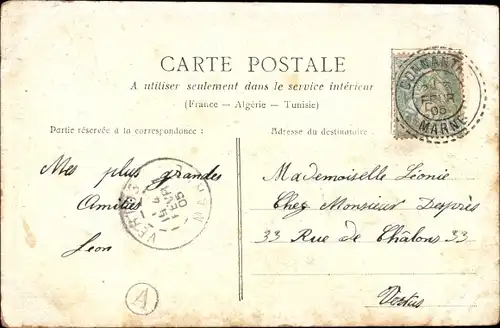 CARTE POSTALE
A utiliser seulement dans le service intérieur
(France — Algérie — Tunisie)
Partie réservée à la correspondance :
Adresse du destinataire :
CONNANTRE
FEVR
05
MARNE
Mes plus grandes
Amitiés
Leon
VERTUS
15
FEVR
05
MARNE
A
Mademoiselle Léonie
Chez Monsieur Després
33 Rue de Châlons 33
Vertus